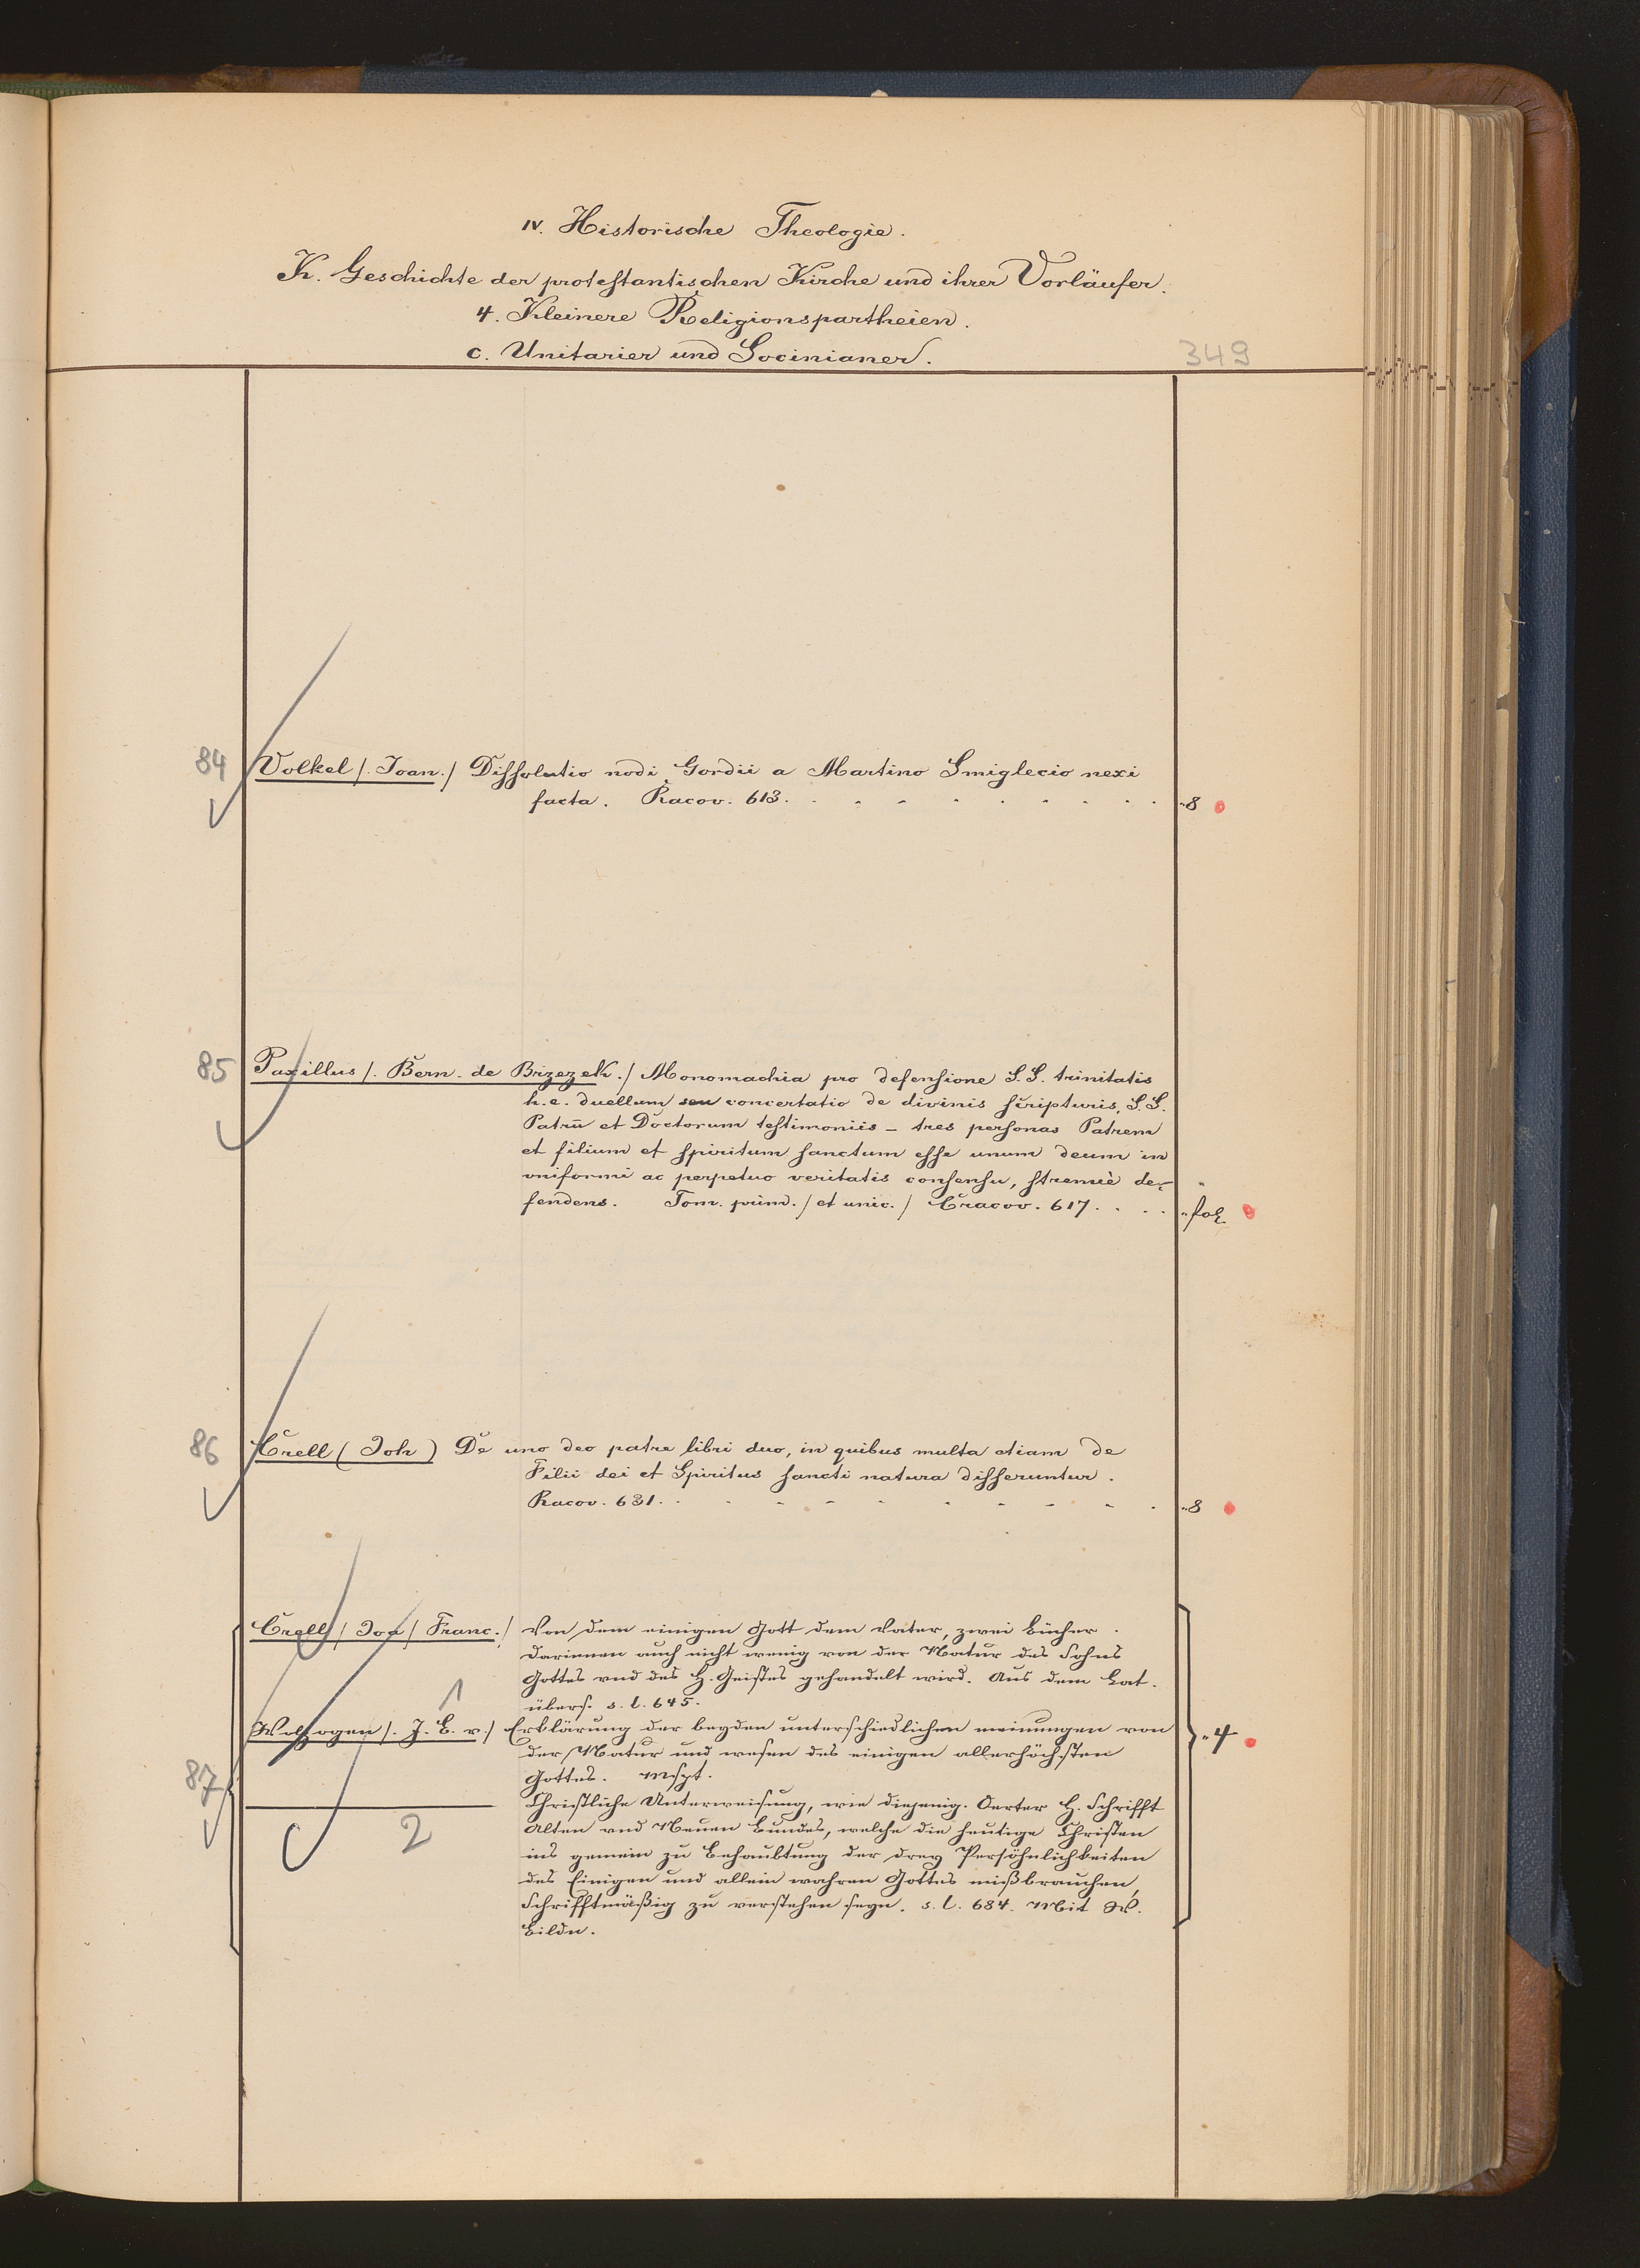 IV. Historische Theologie.
K. Geschichte der protestantischen Kirche und ihrer Vorläufer.
4. Kleinere Religionspartheien.
c. Unitarier und Socinianer.
349
84 Volkel /. Joan./ Dissolutio nodi Gordii a Martino Smiglecio nexi
facta. Racov. 613. 8
85 Paxillus /. Bern. de Brizezek./ Monomachia pro defensione S.S. trinitatis
h.e. duellum seu concertatio de divinis scripturis, S.S.
Patrū et Doctorum testimoniis - tres personas Patrem
et filium et spiritum sanctum esse unum deum in
uniformi ac perpetuo veritatis consensu, strenuè de-
fendens. Tom. prim. / et unic./ Cracov. 617. fol.
86 Crell (Joh) De uno deo patre libri duo, in quibus multa etiam de
Filii dei et Spiritus sancti natura disseruntur.
Racov. 631. 8
Crell / Joa / Franc./ Von dem einigen Gott dem Vater, zwei Bücher.
Darinnen auch nicht wenig von der Natur des Sohns
Gottes vnd des H. Geistes gehandelt wird. Aus dem Lat.
übers. s. l. 645.
1
Wolzogen /. J. L. v./ Erklärung der beyden unterschiedlichen meinungen von
der Natur und wesen des einigen allerhöchsten
Gottes. Mspt.
4
87
2
Christliche Unterweisung, wie diejenig. Oerter H. Schrifft
Alten vnd Neuen Bundes, welche die heutige Christen
ins gemein zu Behaubtung der drey Persöhnlichkeiten
des Einigen und allein wahren Gottes mißbrauchen,
Schrifftmäßig zu verstehen seyn. s. l. 684. Mit W.
Bildn.